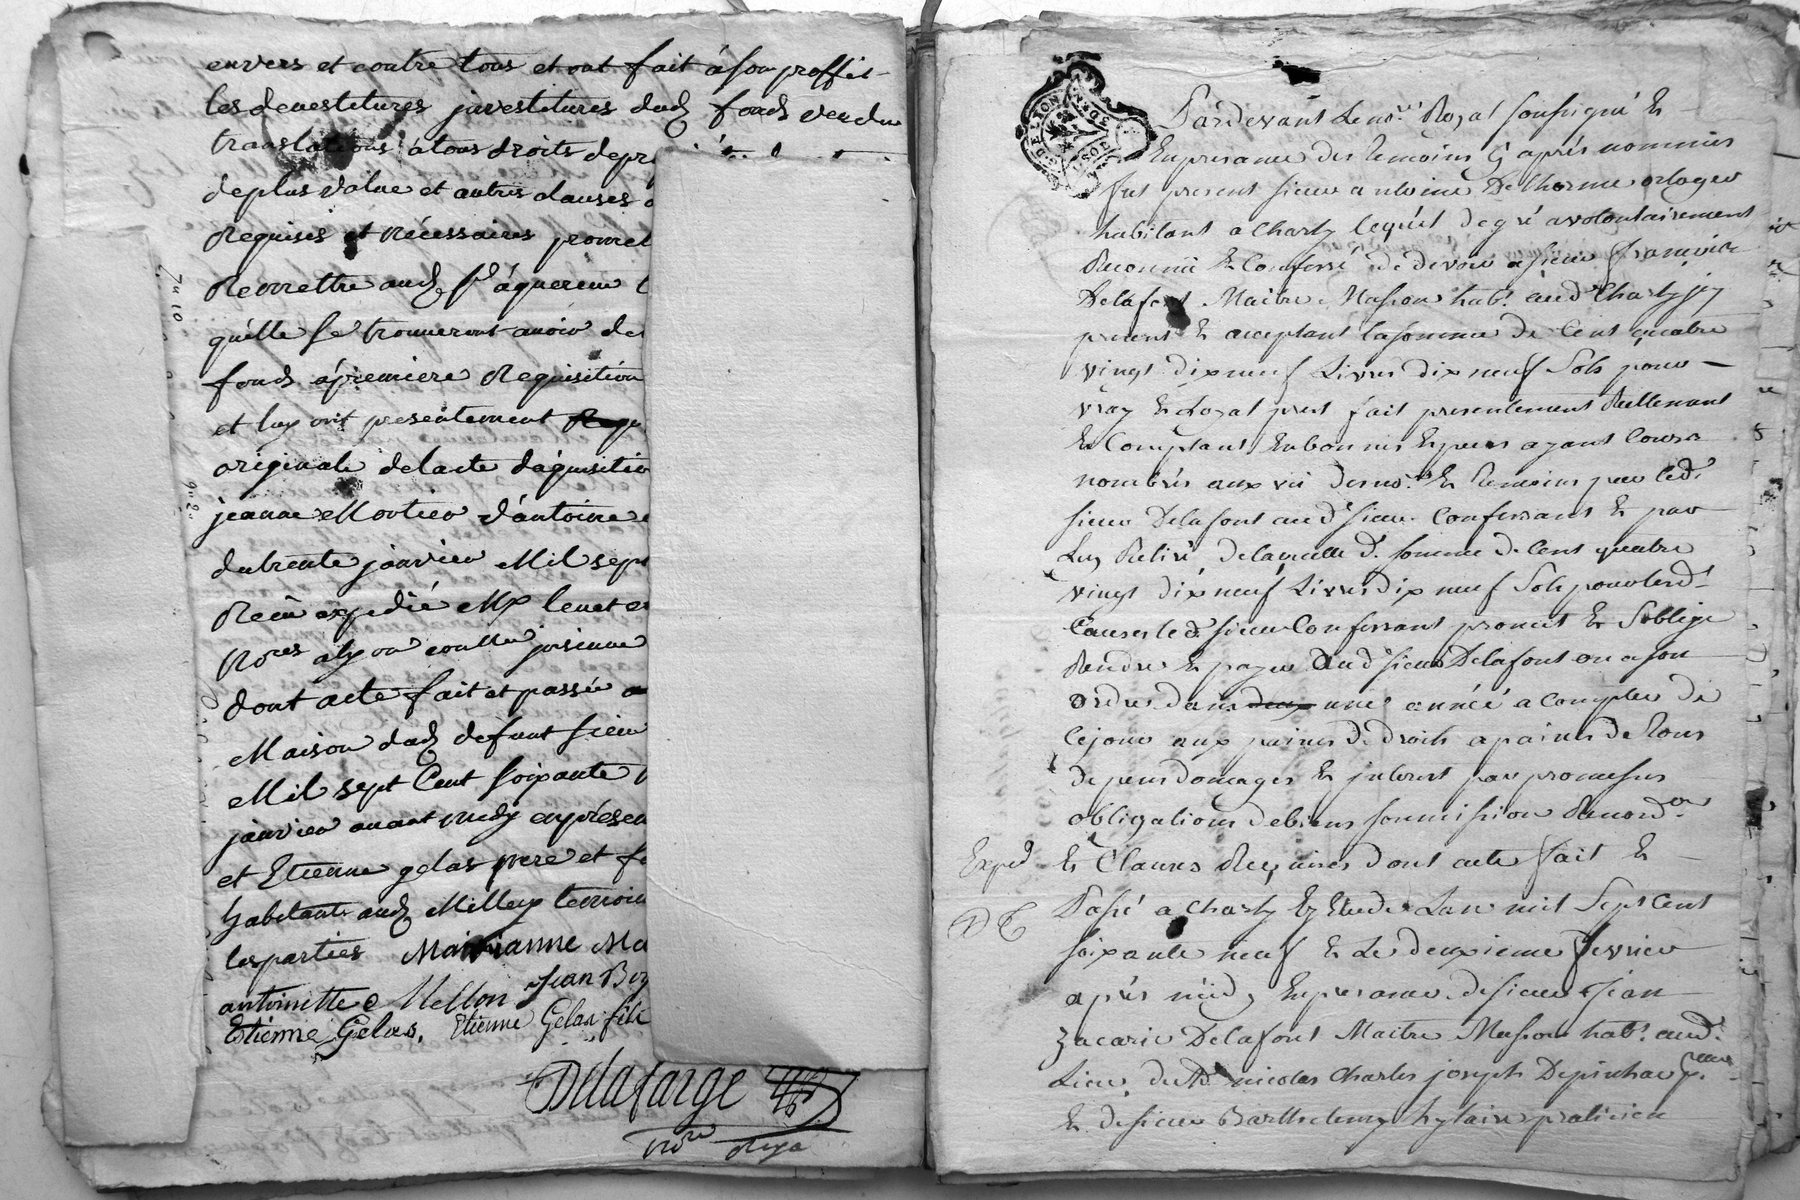 envers et contre tous et ont fait à son proffit
les devestitures jnvestitures dud fonds vendu
translations à tous droits de
de plus value et autres clauses
Requises et nécessaires promet
Remettre aud Sr áquereur
quélle se trouveront avoir de
fonds ápremiere Requisition
et luy ont presentement
originale delacte dáquisitio
jeanne Mortier d'antoine
du trente janvier Mil sept
Recu expedié
Nores
dont acte fait et passée
Maison dud defunt sieu
Mil sept Cent soixante
janvier avant midy enprésen
et Etienne gelas pere et f
habitants aud Millery temoin
les parties Marianne Ma
antoinette Mellon Jean
Etienne Gelas, Etienne Gelas fils
Delafarge
nore Roya
G·DE LYON
Pardevant Le nore Royal soussigné Et
En presance des temoins Cy aprés nommés
fut present sieur antoine Delhorme orloger
habitant a Charly lequél de gré a volontairement
Reconnü Et Confessé de devoir a sieur françois
Delafont Maitre Masson habt. aud Charly jcy
present Et acceptant la somme de Cent quatre
vingt dix neuf Livres dix neuf Sols pour
vray Et Loyal prest fait presentement Réellement
Et Comptant En bonnes Especes ayant Cours
nombrés aux vü desnore Et temoins par led.
sieur Delafont aud sieur Confessant Et par
Luy Retiré, de laquelle d. somme de Cent quatre
vingt dix neuf Livres dix neuf Sols pour lesd.
Causes led sieur Confessant promet Et S'oblige
Rendre Et payer aud sieur Delafont ou a son
ordre dans deux une année a Compter de
Cejour aux paines de droits a paines de tous
depens domages Et jnterest par promesses
obligations de biens soumission Renon.d.on
Exped
Et Clauses Requises dont acte fait Et
Passé a Charly Ez Etude Lan mil Sept Cent
soixante neuf Et Le deuxieme fevrier
aprés midy En presance de sieur Jean
Zacarie Delafont Maitre Masson habt. aud.
Lieu, du Sr nicolas Charles joseph
Et de sieur Barthelemy hylaire praticien